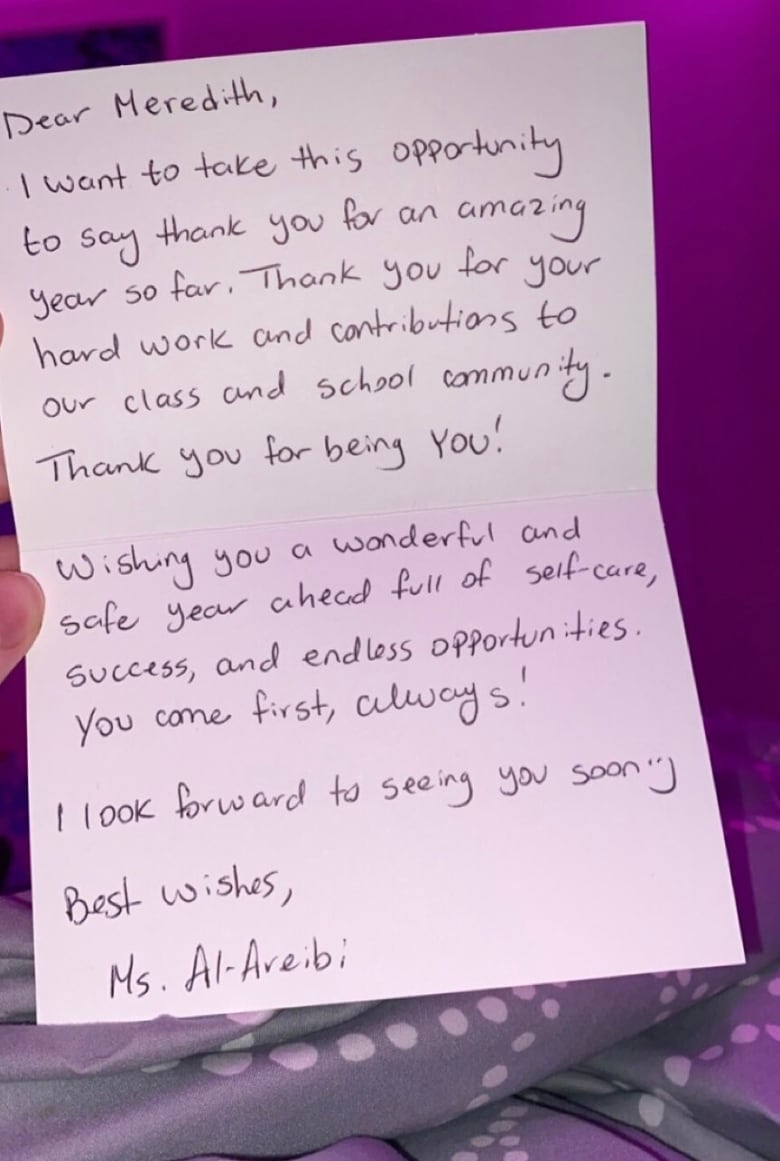 Dear Meredith,
I want to take this opportunity
to say thank you for an amazing
year so far. Thank you for your
hard work and contributions to
our class and school community.
Thank you for being YOU!
Wishing you a wonderful and
safe year ahead full of self-care,
success, and endless opportunities.
You come first, always!
I look forward to seeing you soon :)
Best wishes,
Ms. Al-Areibi